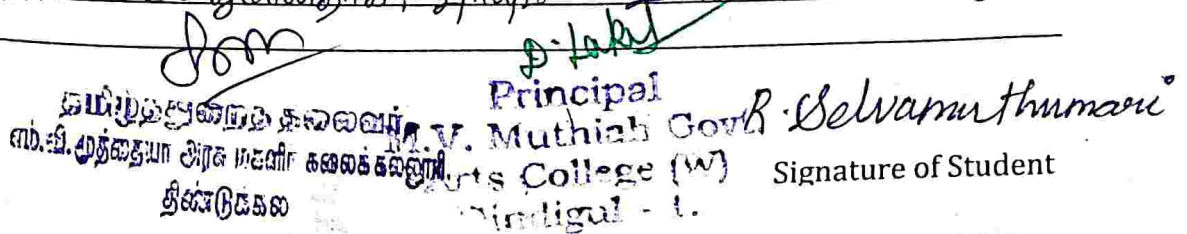 D. Laks
தமிழ்த்துறைத் தலைவர்
எம்.வி.முத்தையா அரசு மகளிர் கலைக்கல்லூரி,
திண்டுக்கல்
Principal
M.V. Muthiah Govt.
Arts College (W)
Dindigul - 1.
R. Selvamuthumari
Signature of Student